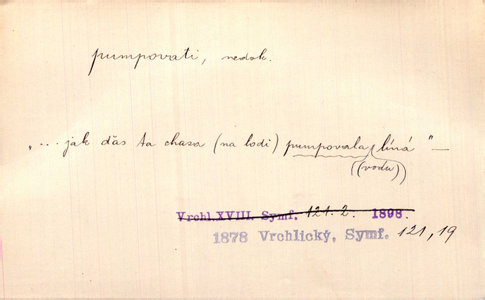 pumpovati, nedok.
"... jak ďas ta chasa (na lodi) pumpovala líná" —
((vodu))
Vrchl.XVIII. Symf. 121.2. 1898.
1878 Vrchlický, Symf. 121,19